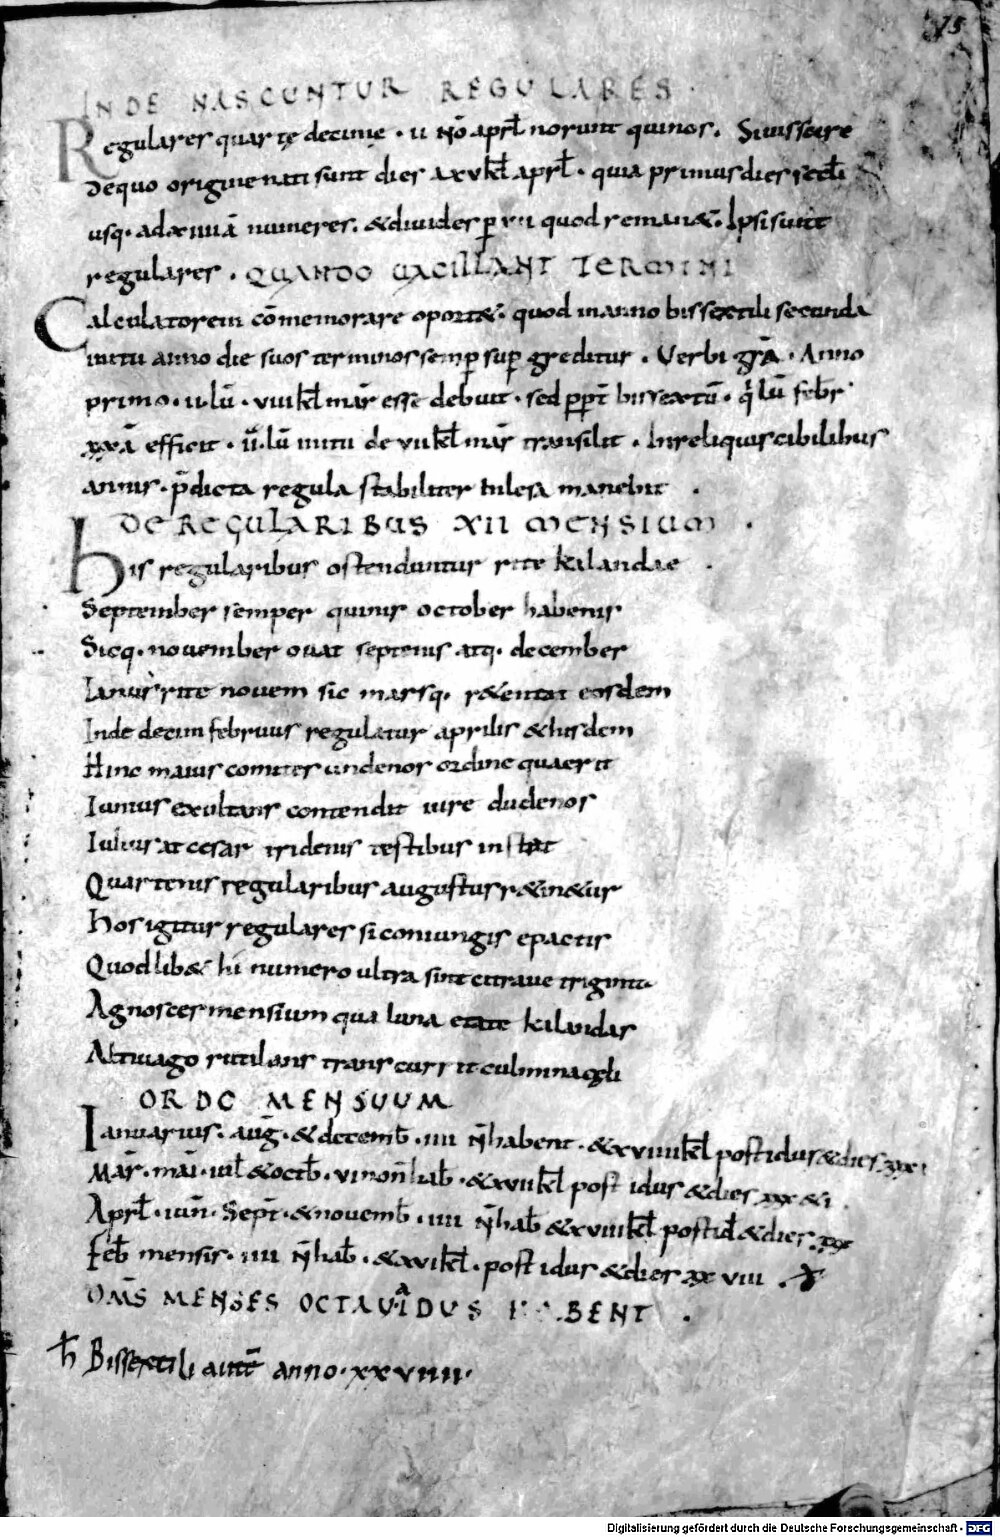 75
INDE NASCUNTUR REGULARES.
Regulares quartę decimę · ii no̅ apr̅l norunt quinos. Si uis scire
de quo origine nati sunt dies xxv kl̅ apr̅l · quia primus dies secl̅i
usq· ad xiiii a̅ numeres. &diuides p̅ vii quod reman&. Ipsi sunt
regulares. QUANDO UACILLANT TERMINI
Calculatorem co̅memorare oport&. quod in anno bissextili secunda
initu anno die suos terminos semp̅ sup̅ greditur. Uerbi gr̅a · Anno
primo · ii · lu̅ · viii kl̅ mar̅ esse debuit · sed pp̅t̅ bissextu̅ · q̅ lu̅ febr̅
xxxa̅ efficit · ii · lu̅ initu de vii kl̅ mar̅ transilit. In reliquis cibilibus
annis · p̅dicta regula stabiliter inlesa manebit.
DE REGULARIBUS XII MENSIUM.
His regularibus ostenduntur rite kalandae.
September semper quinis october habenis
Sicq· nouember ouat septenis atq· december
Ianus rite nouem sic marsq· r&entat eosdem
Inde decim februus regulatur aprilis & hisdem
Hinc maius comites undenos ordine quaerit
Iunius exultans contendit uire dudenos
Iulius at cesar tridenis testibus instat
Quartenis regularibus augustus r&in&ur
Hos igitur regulares si coniungis epactis
Quodlib& hi numero ultra sint citraue triginta
Agnosces mensium qua luna etate kalandas
Altiuago rutilans transcurrit culmina cęli
ORDO MENSUUM
Ianuarius. aug̅ · &decemb̅ · iiii n̅ habent · &xviiii kl̅ post idus &dies xxxi
Mar̅. mai̅ · iul̅ &octb̅ · vi non̅ hab̅ · &xvii kl̅ post idus &dies xxx &i.
Apr̅l · iun̅ · Sept̅ · &nouemb̅ · iiii n̅ hab̅ &xviii kl̅ post id̅ &dies xxx
Feb̅ mensis · iiii n̅ hab̅ · &xvi kl̅ · post idus &dies xx viii.
OM̅S MENSES OCTAUA IDUS HABENT.
h̅ Bissextili aute̅ anno · xxviiii ·
Digitalisierung gefördert durch die Deutsche Forschungsgemeinschaft - DFG